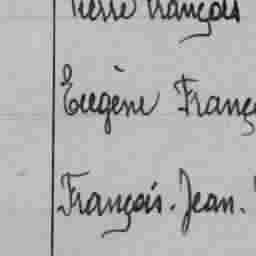 Pierre François
Eugène Franç
François. Jean.